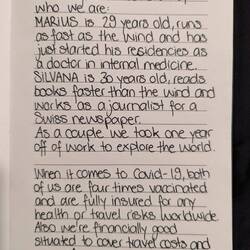 who we are:
MARIUS is 29 years old, runs
as fast as the wind and has
just started his residencies as
a doctor in internal medicine.
SILVANA is 30 years old, reads
books faster than the wind and
works as a journalist for a
Swiss newspaper.
As a couple we took one year
off of work to explore the world.
When it comes to Covid-19, both
of us are four times vaccinated
and are fully insured for any
health or travel risks worldwide.
Also we're financially good
situated to cover travel costs and